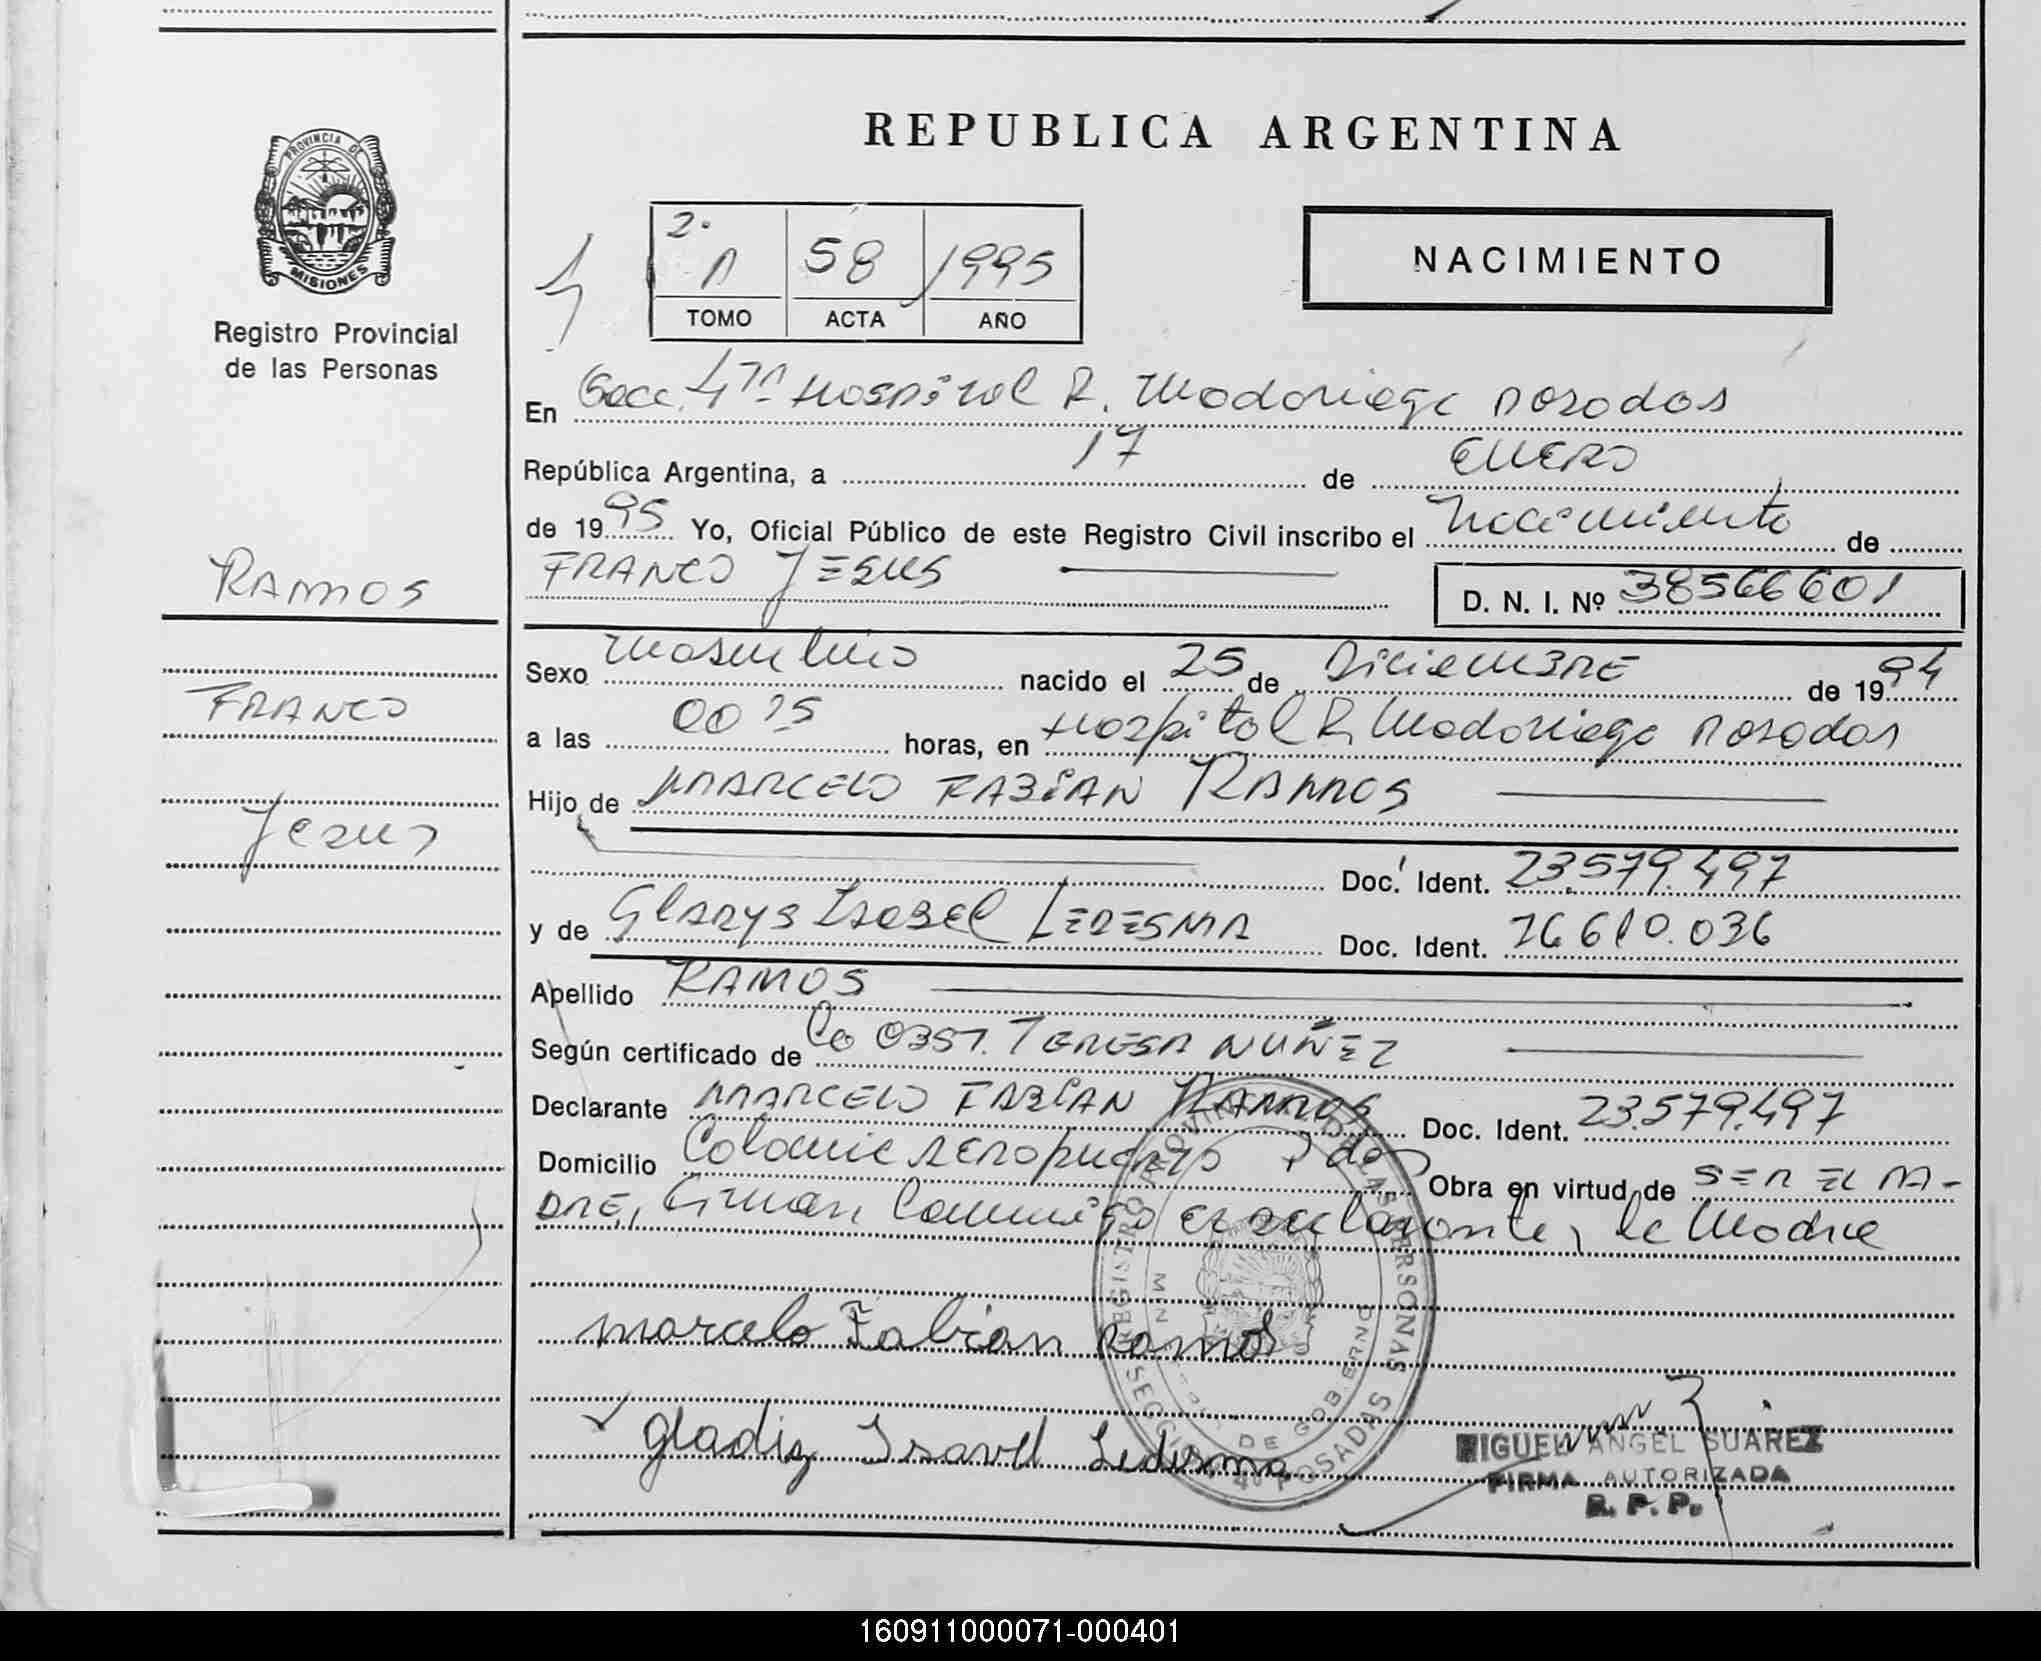 REPUBLICA ARGENTINA
PROVINCIA DE MISIONES
Registro Provincial
de las Personas
2º
58
1995
TOMO ACTA AÑO
NACIMIENTO
En Secc. 4ta Hospital R. Madariaga Posadas
República Argentina, a 17 de ENERO
de 1995 Yo, Oficial Público de este Registro Civil inscribo el Nacimiento de
FRANCO JESUS
D. N. I. Nº 38566601
RAMOS
FRANCO
Jesus
Sexo Masculino nacido el 25 de DiciemBRE de 1994
a las 00 15 horas, en Hospital R. Madariaga Posadas
Hijo de MARCELO FABIAN RAMOS
Doc. Ident. 23.579.497
y de Gladys Isabel LEDESMA Doc. Ident. 16.610.036
Apellido RAMOS
Según certificado de La OBST. TERESA NUÑEZ
Declarante MARCELO FABIAN RAMOS Doc. Ident. 23.579.497
Domicilio Colonia Aeropuerto Pdas Obra en virtud de SER EL PA-
DRE, Firman Conmigo el declarante, la Madre
marcelo Fabian Ramos
gladiz Isavel Ledesma
REGISTRO PROVINCIAL DE LAS PERSONAS
SECCION 4º POSADAS
MINISTERIO DE GOBIERNO
MIGUEL ANGEL SUAREZ
FIRMA AUTORIZADA
R. P. P.
160911000071-000401